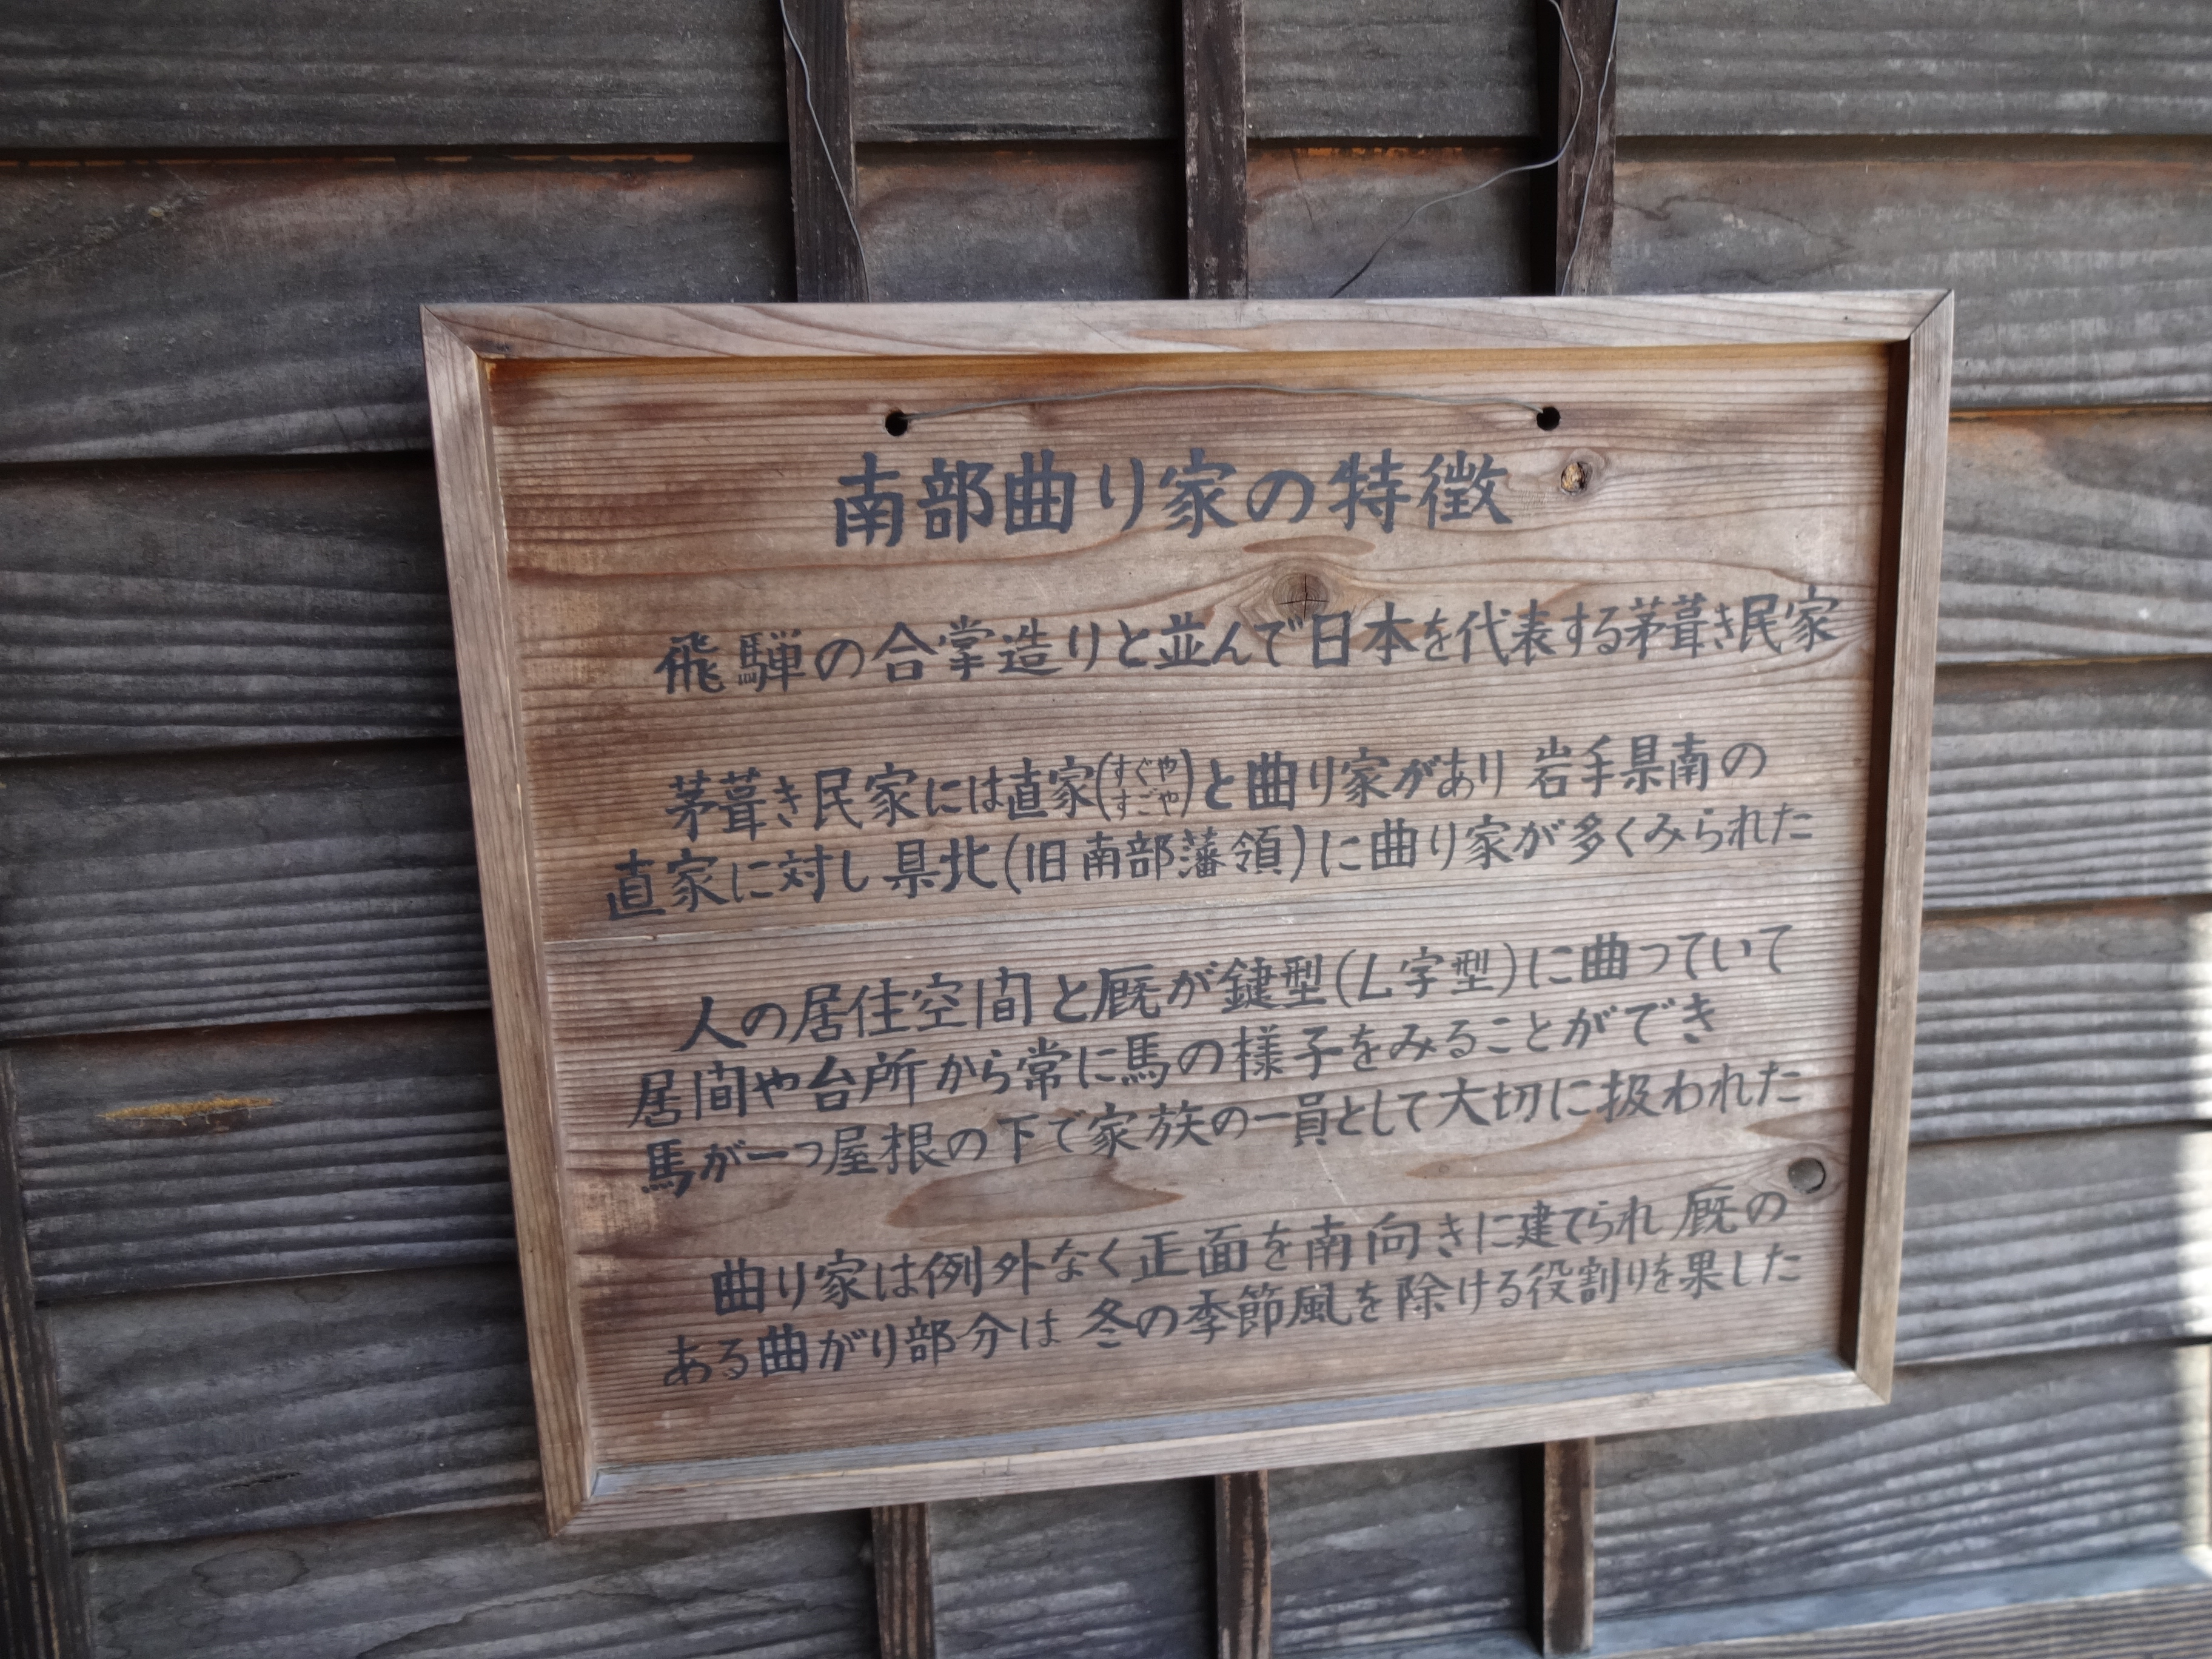 南部曲り家の特徴
飛騨の合掌造りと並んで日本を代表する茅葺き民家
茅葺き民家には直家(すぐや すごや)と曲り家があり 岩手県南の
直家に対し県北(旧南部藩領)に曲り家が多くみられた
人の居住空間と厩が鍵型(L字型)に曲っていて
居間や台所から常に馬の様子をみることができ
馬が一つ屋根の下で家族の一員として大切に扱われた
曲り家は例外なく正面を南向きに建てられ 厩の
ある曲がり部分は 冬の季節風を除ける役割りを果した